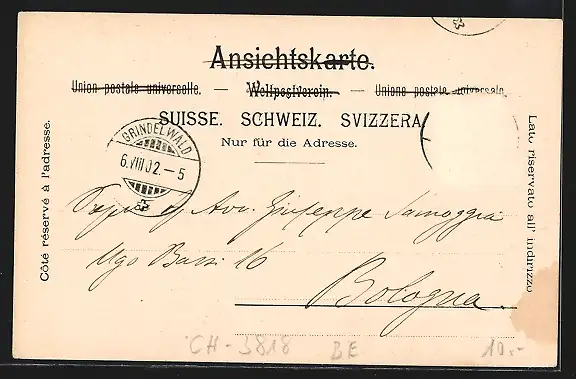 Ansichtskarte.
Union postale universelle. — Weltpostverein. — Unione postale universale.
SUISSE. SCHWEIZ. SVIZZERA
Nur für die Adresse.
Côté réservé à l'adresse.
Lato riservato all' indirizzo
GRINDELWALD
6.VIII.02.—5
Avv. Giuseppe Samoggia
Ugo Bassi 16
Bologna.
CH-3818 BE 10.-